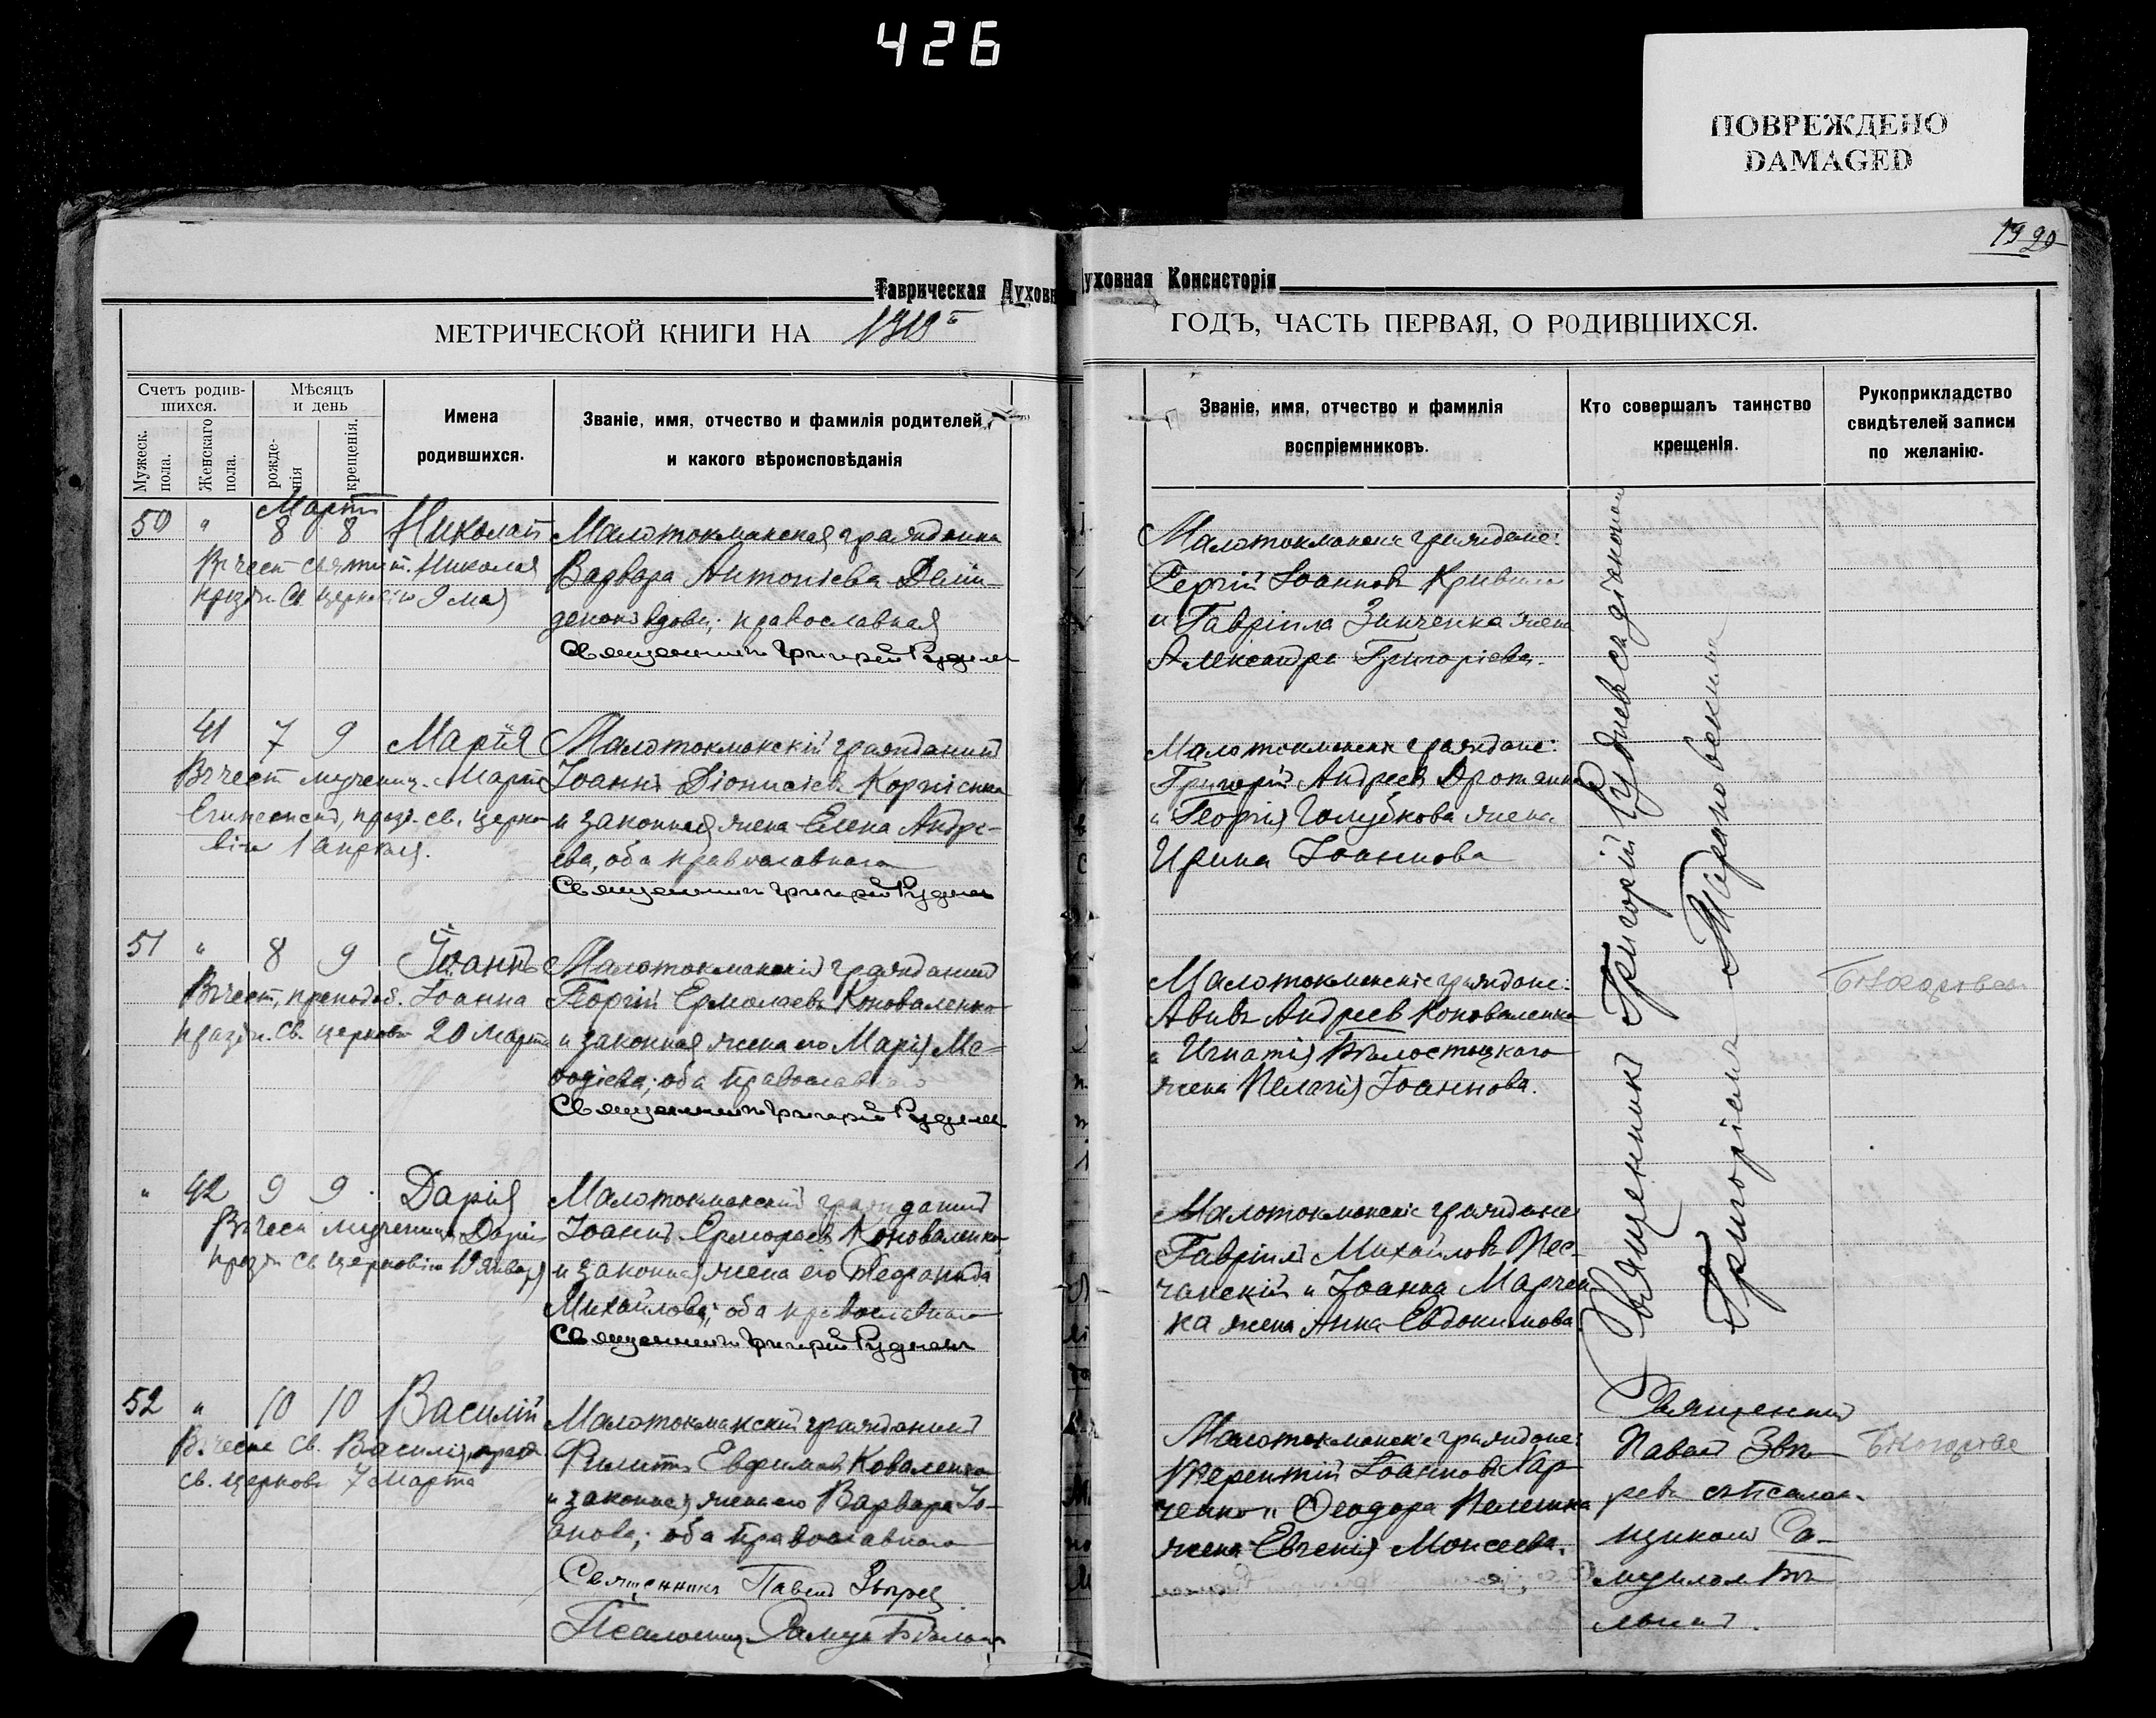 426
ПОВРЕЖДЕНО
DAMAGED
19 20
Таврическая Духовн
уховная Консисторія
МЕТРИЧЕСКОЙ КНИГИ НА
ГОДЪ, ЧАСТЬ ПЕРВАЯ, О РОДИВШИХСЯ.
Счетъ родив-
шихся.
Мужеск.
пола.
Женскаго
пола.
Мѣсяцъ
и день
рожде-
нія
крещенія.
Имена
родившихся.
Званіе, имя, отчество и фамилія родителей,
и какого вѣроисповѣданія
Званіе, имя, отчество и фамилія
воспріемниковъ.
Кто совершалъ таинство
крещенія.
Рукоприкладство
свидѣтелей записи
по желанію.
Мартъ
50 " 8 8 Николай
Въ чест святит. Николая
празд. Св. церковію 9 мая
Малотокмакская гражданка
Варвара Антоніева
вдова; православная
Священникъ Григорій Руднев
Малотокмакскіе граждане:
Сергій Іоанновъ
и Гавріила Зинченка жена
Александра Григоріева.
41 7 9 Марія
Въ чест мучениц. Маріи
Египетской, празд. св. церко-
вію 1 апрѣля.
Малотокмакскій гражданинъ
Іоаннъ Діонисіевъ Корніенко
и законная жена Елена Андре-
ева, оба православнаго
Священникъ Григорій Руднев
Малотокмакскіе граждане:
Григорій Андреевъ
и Георгія Голубкова жена
Ирина Іоаннова
51 " 8 9 Іоаннъ
Въ чест, преподоб. Іоанна
празд. Св. церковію 20 Марта
Малотокмакскій гражданинъ
Георгій Ермолаевъ Коноваленко
и законная жена его Марія Ме-
ѳодіева; оба православнаго
Священникъ Григорій Руднев
Малотокмакскіе граждане:
Андреев Коноваленко
и Игнатія Бѣлостоцкаго
жена Пелагія Іоаннова.
" 42 9 9 Дарія
Въ чест мученицы Даріи
празд Св церковію
Малотокмакскій гражданинъ
Іоаннъ Коноваленко
и законная жена его
Михайлова; оба православнаго
Священникъ Григорій Руднев
Малотокмакскіе граждане
Гавріилъ Михайловъ Пес-
чанскій и Іоанна Марчен
ка жена Анна Евдокимова
Священникъ Григорій Руднев съ діакономъ
Григоріемъ Терновскимъ
52 " 10 10 Василій
Въ честь св. Василія, празд
св. церковію 7 Марта
Малотокмакскій гражданинъ
Филиппъ Евфимовъ Коваленко
и законная жена его Варвара Іо-
анова; оба православнаго
Священникъ Павелъ Звѣрев
Псаломщ. Самуил
Малотокмакскіе граждане:
Терентій Іоанновъ Хар-
ченко и Ѳеодора
жена Евгенія Моисеева.
Священникъ
Павелъ Звѣ-
ревъ съ псалом-
щикомъ Са-
муилом